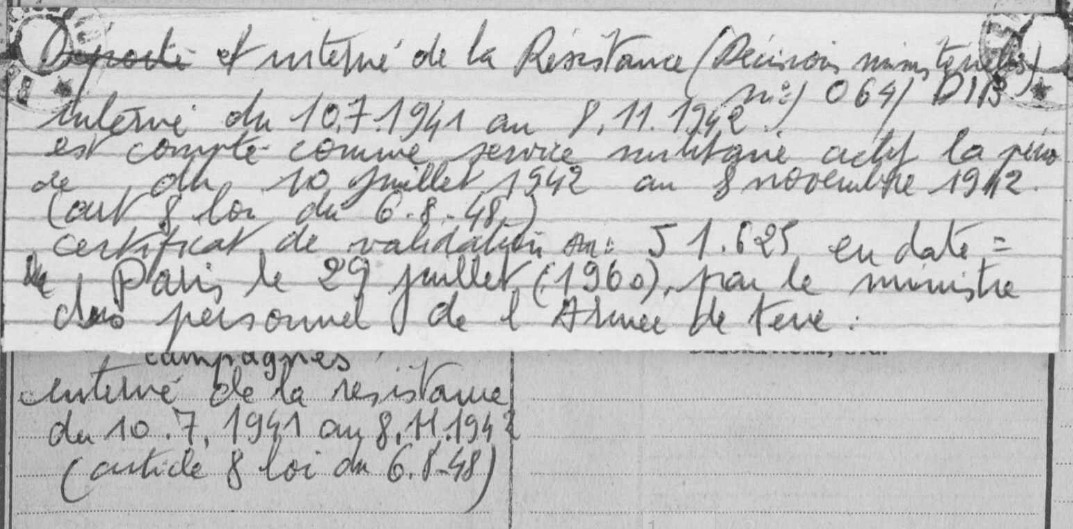 Déporté et interné de la Résistance (Décision ministérielle)
n° 1 0641 DIB
interné du 10.7.1941 au 8.11.1942
est compté comme service militaire actif la pério
de du 10 juillet 1942 au 8 novembre 1942.
(art 8 loi du 6.8.48.)
certificat de validation n: 51.625 en date =
de Paris le 29 juillet (1960), par le ministre
du personnel de l Armée de terre.
campagnes
interné de la resistance
du 10.7.1941 au 8.11.1942
(article 8 loi du 6.8.48)